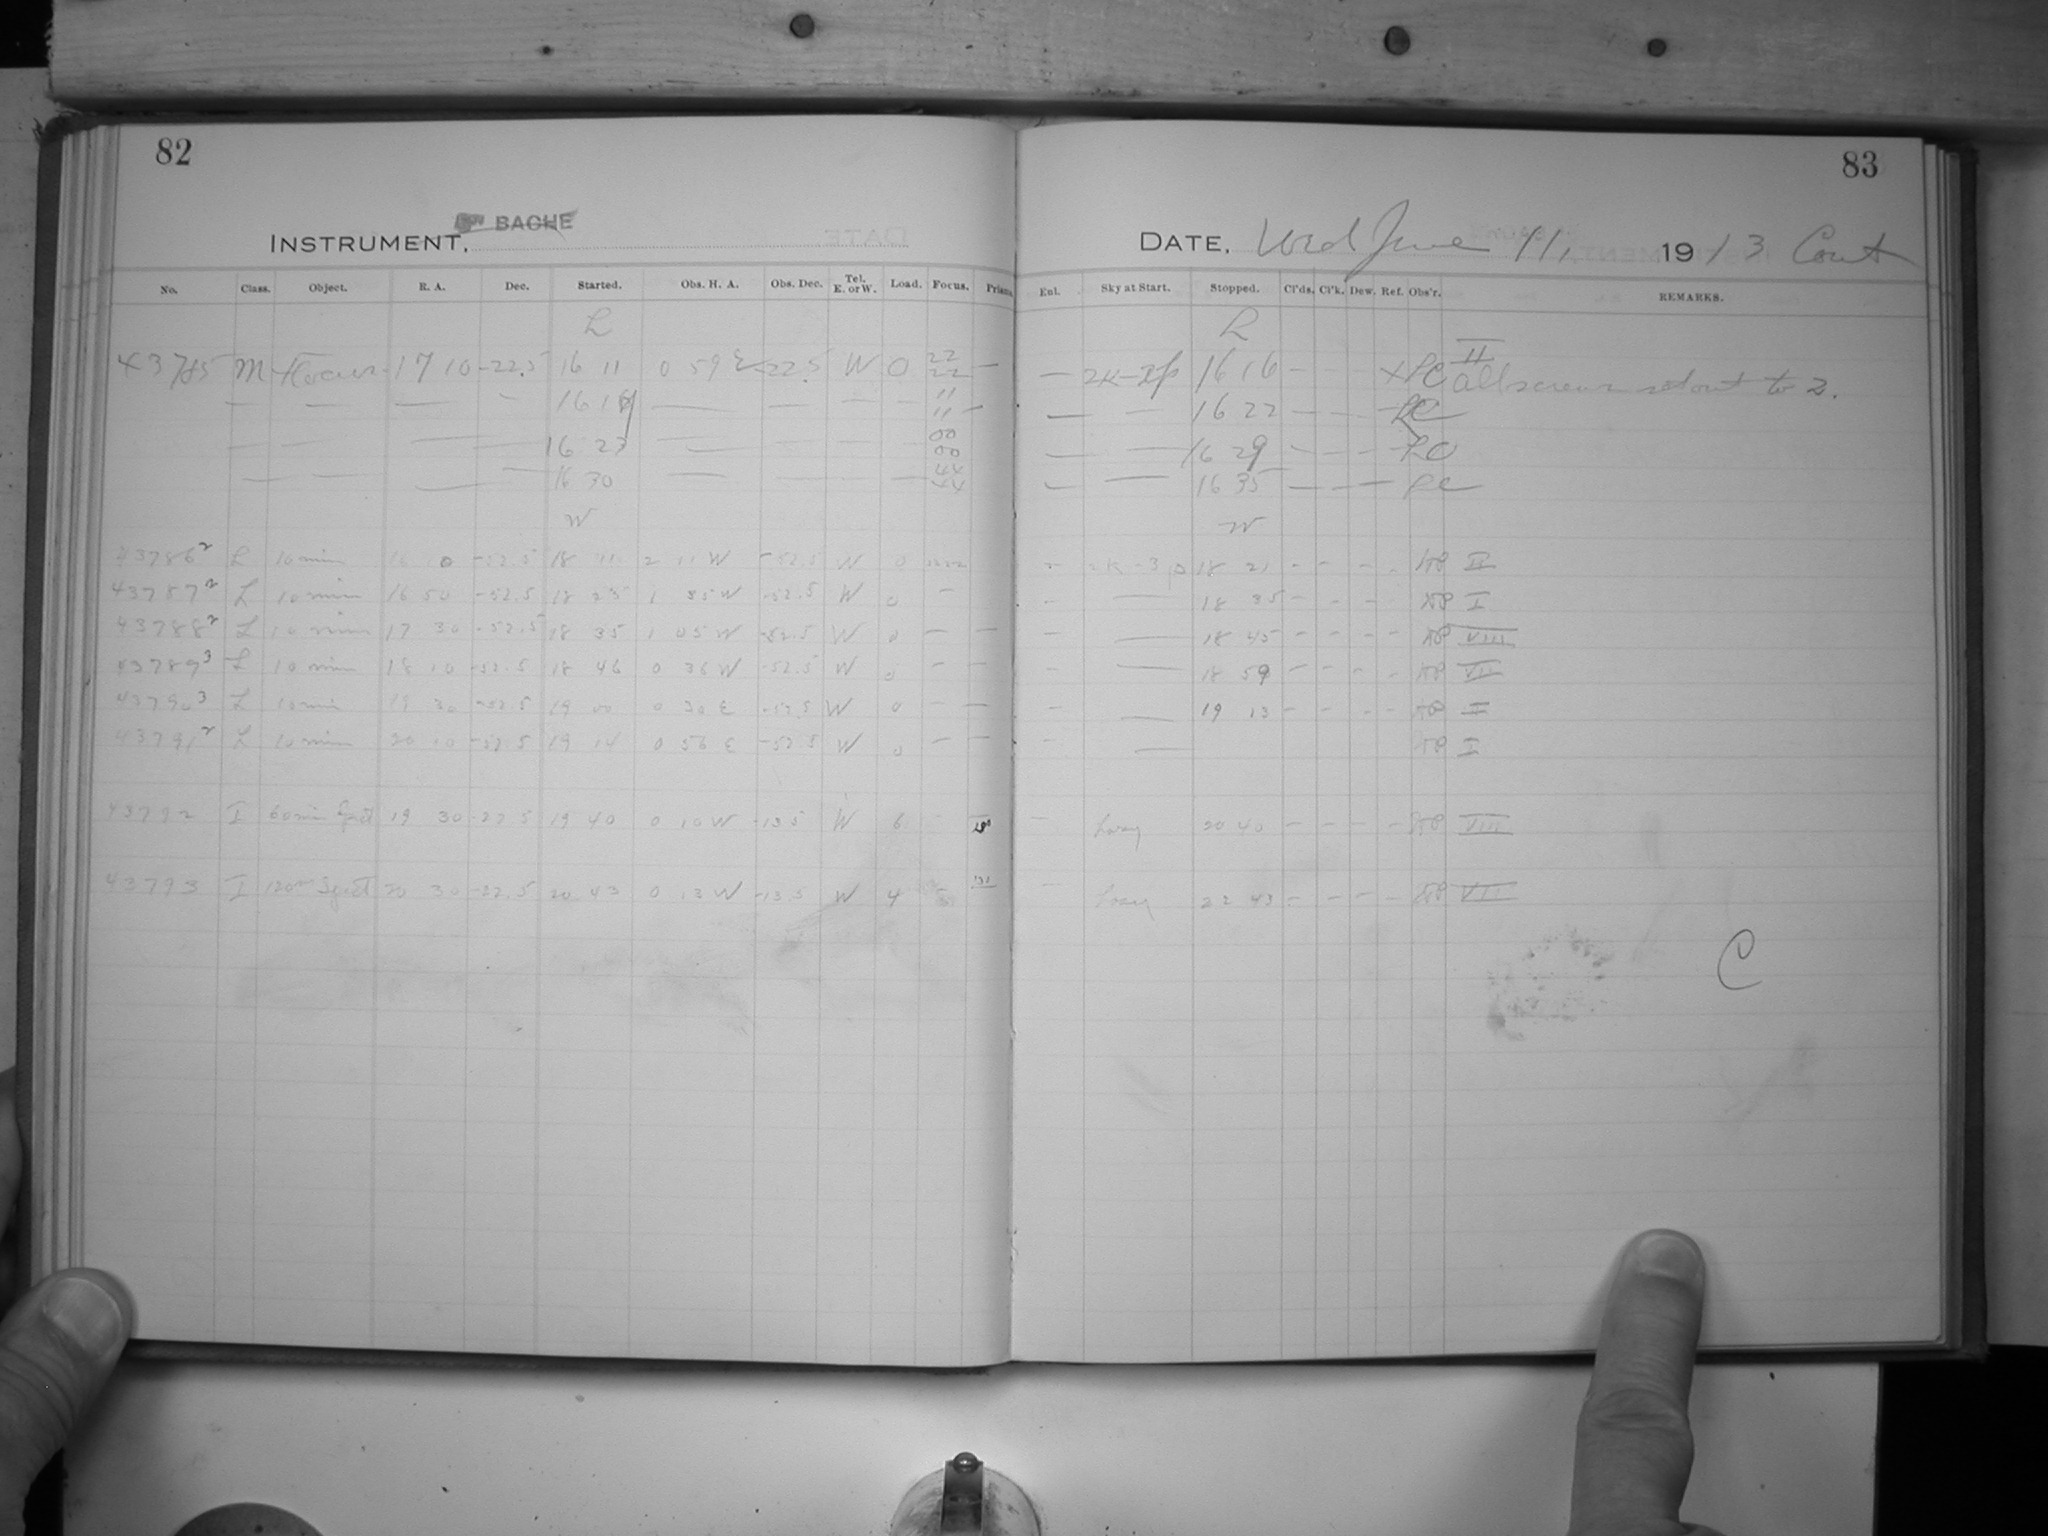 82
INSTRUMENT, BACHE
No. Class. Object. R. A. Dec. Started. Obs. H. A. Obs. Dec. Tel. E. or W. Load. Focus. Prisms
L
43785 M Focus 17 10 -22.5 16 11 0 59 E -22.5 W 0 22 22 —
— — — — 16 — — — — 11 11 —
— — — — 16 23 — — — — 00 00
— — — — 16 30 — — — — 44 44
W
43786² L 10 min 10 -52.5 18 11 2 W -52.5 W 0
43787² L 10 min 16 50 -52.5 18 25 1 35 W -52.5 W 0 —
43788² L 10 min 17 30 -52.5 18 35 1 05 W -52.5 W 0 — —
43789³ L 10 min 18 10 -52.5 18 46 0 36 W -52.5 W 0 — —
43790³ L 10 min 19 30 -52.5 19 00 0 30 E -52.5 W 0 — —
43791² L 10 min 20 10 -52.5 19 14 0 56 E -52.5 W 0 — —
43792 I 60 min Spct 19 30 -22.5 19 40 0 10 W -13.5 W 6 -
43793 I 120m Spct 20 30 -22.5 20 43 0 13 W -13.5 W 4 -
83
DATE, Wed June 11, 1913 Cont
Enl. Sky at Start. Stopped. Cl'ds. Cl'k. Dew. Ref. Obs'r. REMARKS.
L
— 16 16 - - II
All screws set out to 2.
— — 16 22 — — —
— — 16 29 - - -
— — 16 35 — — —
W
- 18 21 - - - - II
- — 18 35 - - - - I
- — 18 45 - - - - VIII
- — 18 59 - - - - VII
- — 19 13 - - - - II
- — I
— hazy 20 40 - - - - VIII
— hazy 22 43 - - - - VII
C